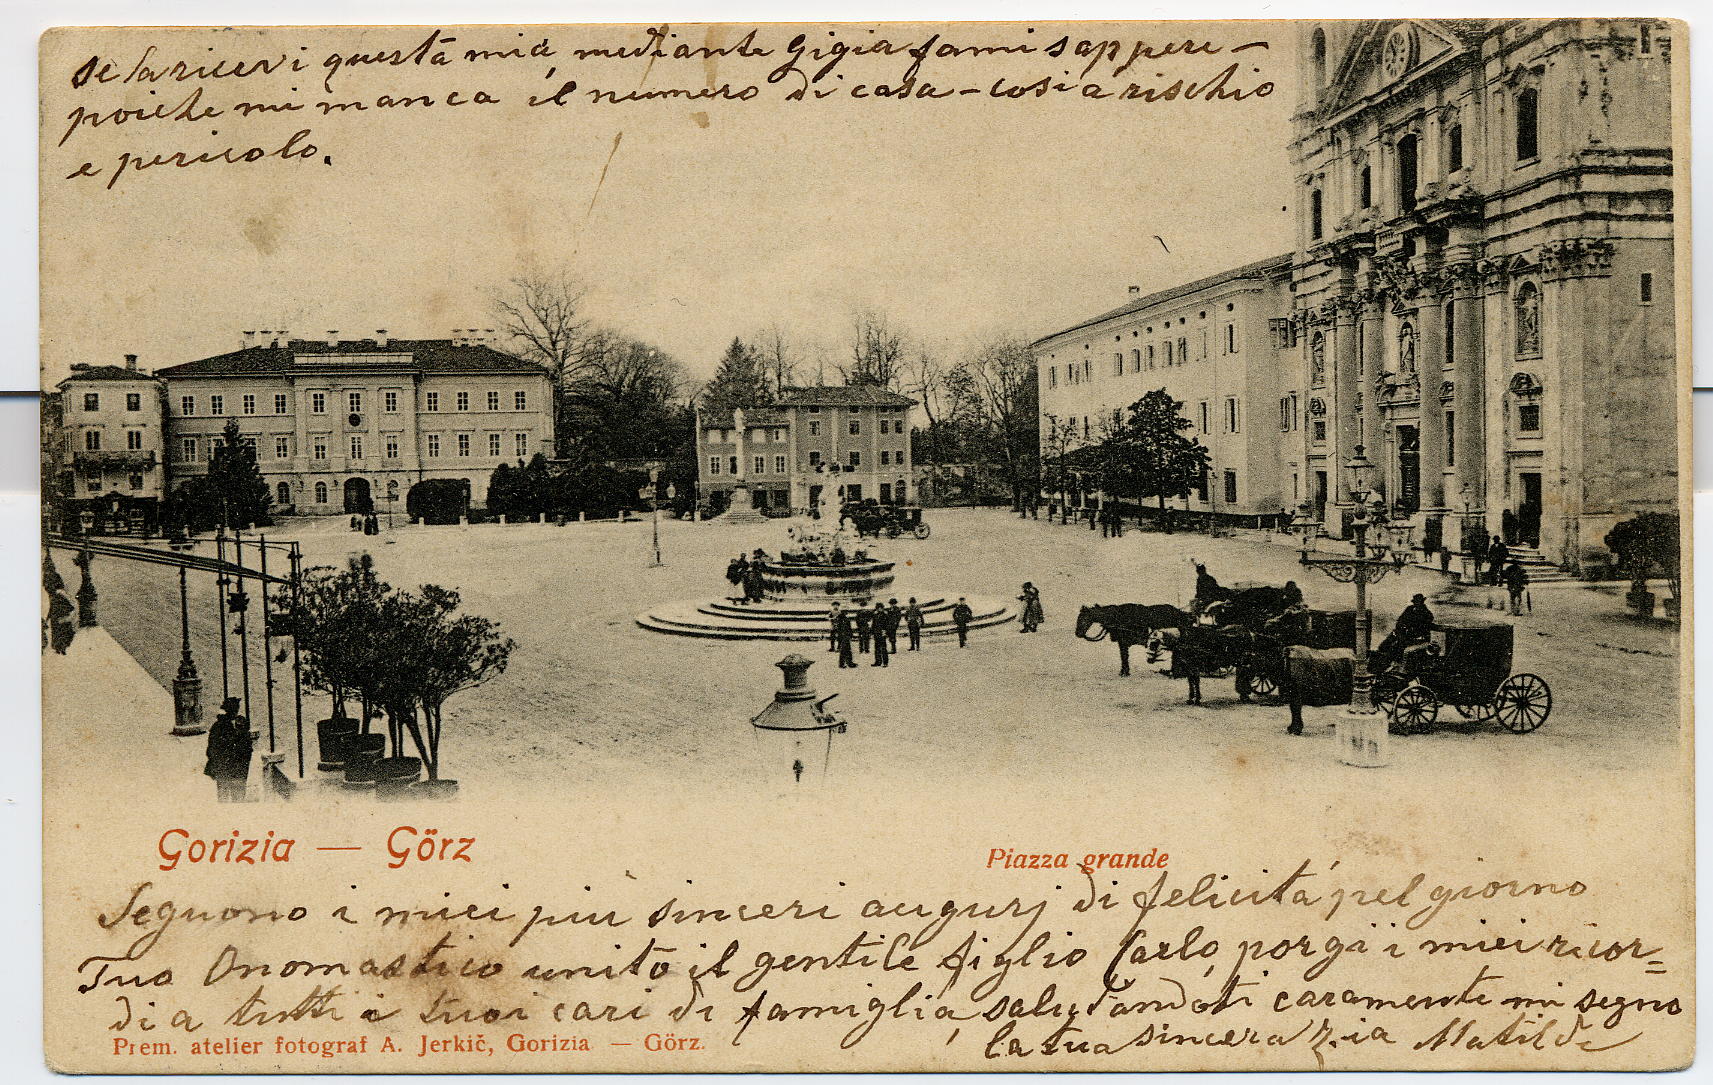 se la ricevi questa mia, mediante Gigia fami sappere –
poiche mi manca il numero di casa – cosi a rischio
e pericolo.
Gorizia — Görz
Piazza grande
Seguono i miei più sinceri augurj di felicitá pel giorno
Tuo Onomastico unito il gentile figlio Carlo, porgi i miei ricor=
di a tutti i tuoi cari di famiglia, salutandoti caramente mi segno
la tua sincera zia Matilde
Prem. atelier fotograf A. Jerkič, Gorizia — Görz.